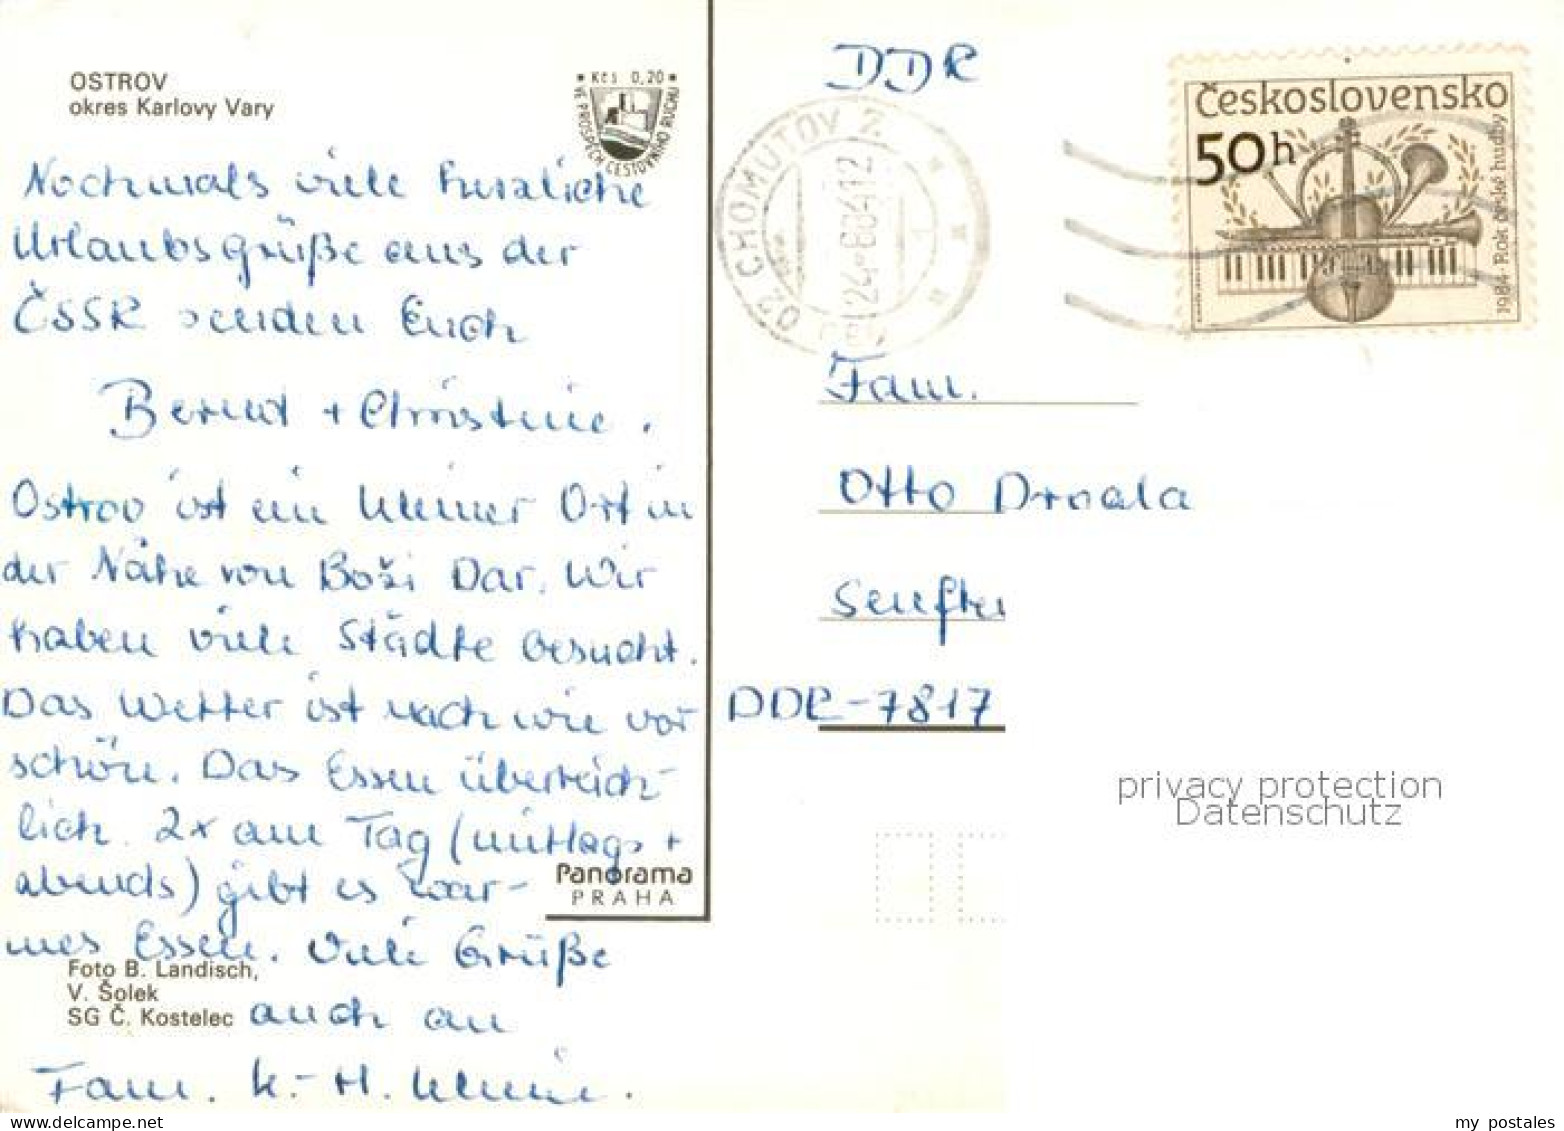 OSTROV
okres Karlovy Vary
* Kčs 0,20 *
VE PROSPĚCH CESTOVNÍHO RUCHU
Nochmals viele herzliche
Urlaubsgrüße aus der
ČSSR senden Euch
Bernd + Christine.
Ostrov ist ein kleiner Ort in
der Nähe von Boži Dar. Wir
haben viele Städte besucht.
Das Wetter ist nach wie vor
schön. Das Essen überreich-
lich. 2x am Tag (mittags +
abends) gibt es war-
mes Essen. Viele Grüße
auch an
Fam. K.-H. Klenie.
Panorama
PRAHA
Foto B. Landisch,
V. Šolek
SG Č. Kostelec
DDR
CHOMUTOV 2
02
24.-8.86-12
Československo
50h
1984 - Rok české hudby
Fam.
Otto Droala
Senften
DDR-7817
privacy protection
Datenschutz
www.delcampe.net
my_postales